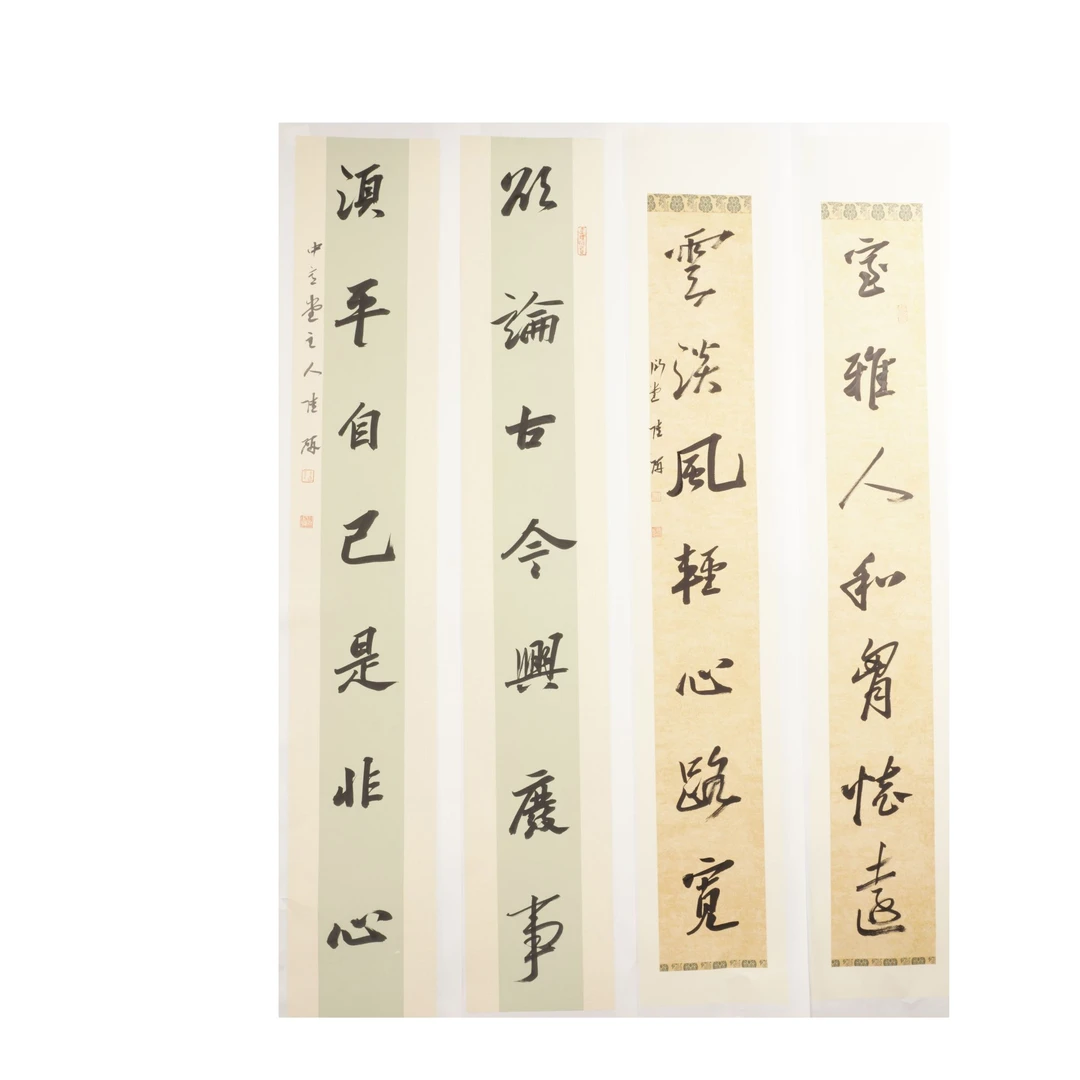 室雅人和胷懷遠
雲淡風輕心路寬
欲論古今興廢事
須平自己是非心
中立堂主人